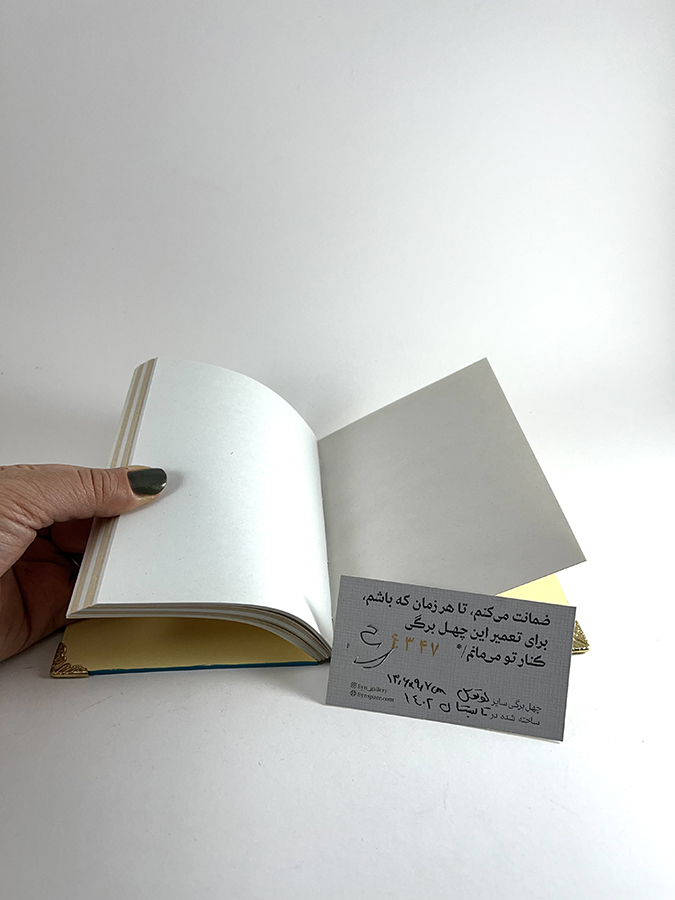 ضمانت می‌کنم، تا هر زمان که باشم،
برای تعمیر این چهل برگی
کنار تو می‌مانم/° ۶۳۴۷
چهل برگی سایز
۱۳٫۶x۹٫۷cm
ساخته شده در تابستان ۱۴۰۲
Eyn_gallery
Eynspace.com